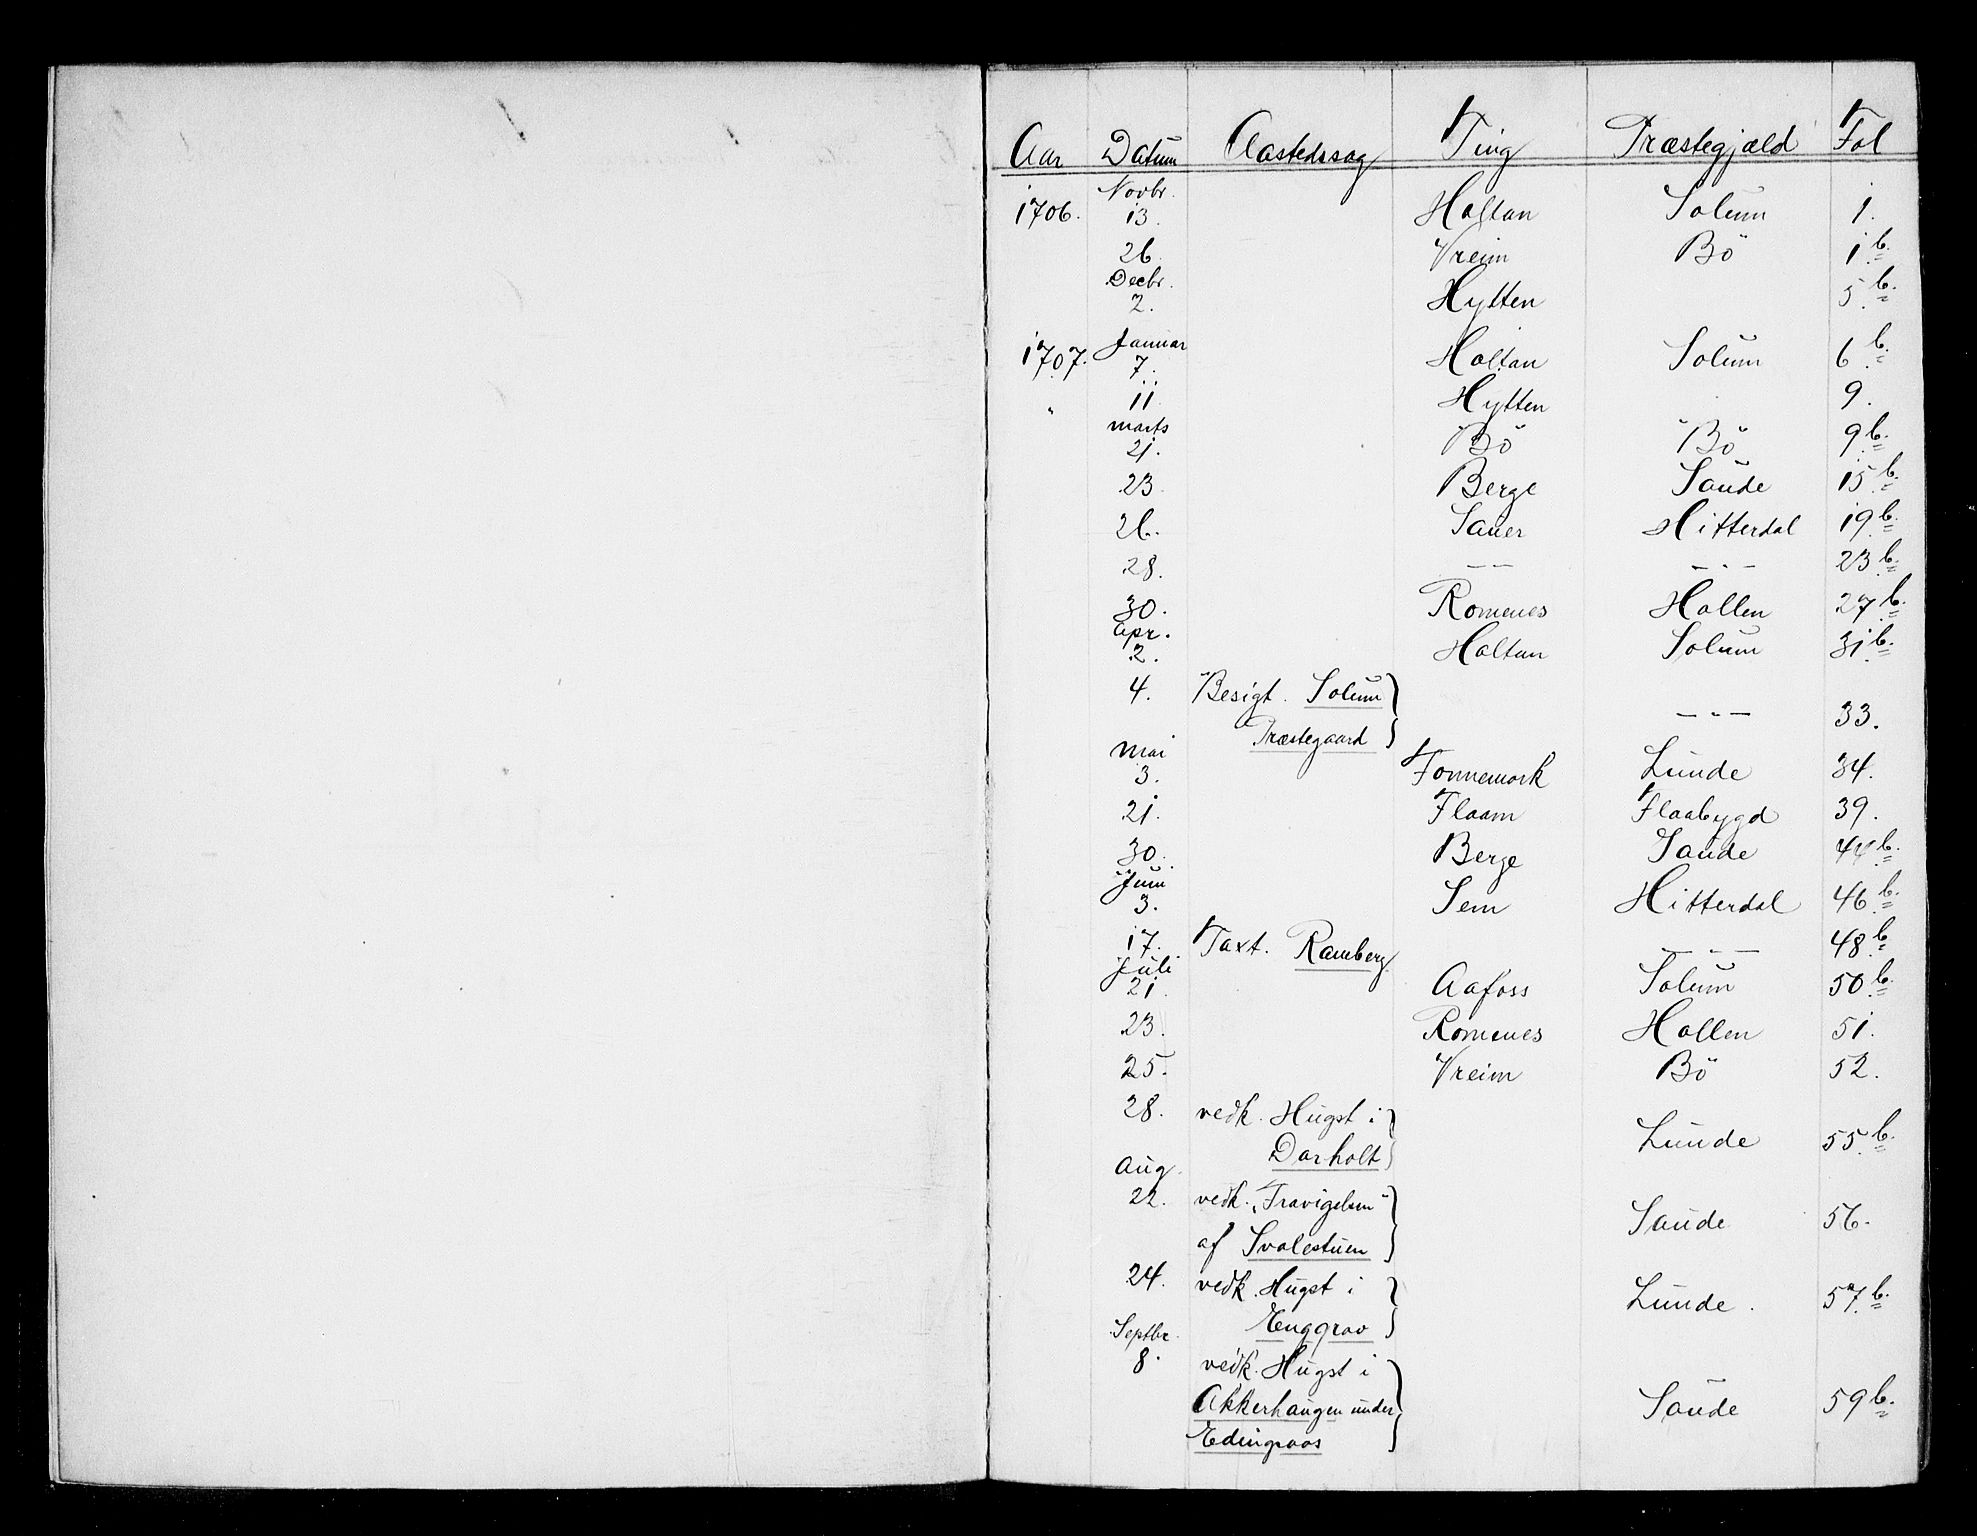 Aar Datum Aastedssag Ting Præstegjæld Fol
Novbr.
1706. 13. Holtan Solum 1.
26. Vreim Bö 1 b.
Decbr.
2. Hytten 5 b.
Januar
1707. 7. Holtan Solum 6 b.
" 11. Hytten 9.
marts
21. Bö Bö 9 b.
23. Berge Saude 15 b.
26. Sauer Hitterdal 19 b.
28. — — — " — 23 b.
30. Romenes Hollen 27 b.
Apr.
2. Holtan Solum 31 b.
4. Besigt. Solum
Præstegaard — " — 33.
Mai
3. Fonnemork Lunde 34.
21. Flaam Flaabygd 39.
30. Berge Saude 44 b.
Juni
3. Sem Hitterdal 46 b.
17. Taxt. Ramberg — " — 48 b.
Juli
21. Aafoss Solum 50 b.
23. Romenes Hollen 51.
25. Vreim Bö 52.
28. vedk. Hugst i
Dorholt Lunde 55 b.
Aug.
22. vedk. „Fravigelsen"
af Svalestuen Saude 56.
24. vedk. Hugst i
Enggrav Lunde. 57 b.
Septbr.
8. vedk. Hugst i
Akkerhaugen under Saude 59 b.